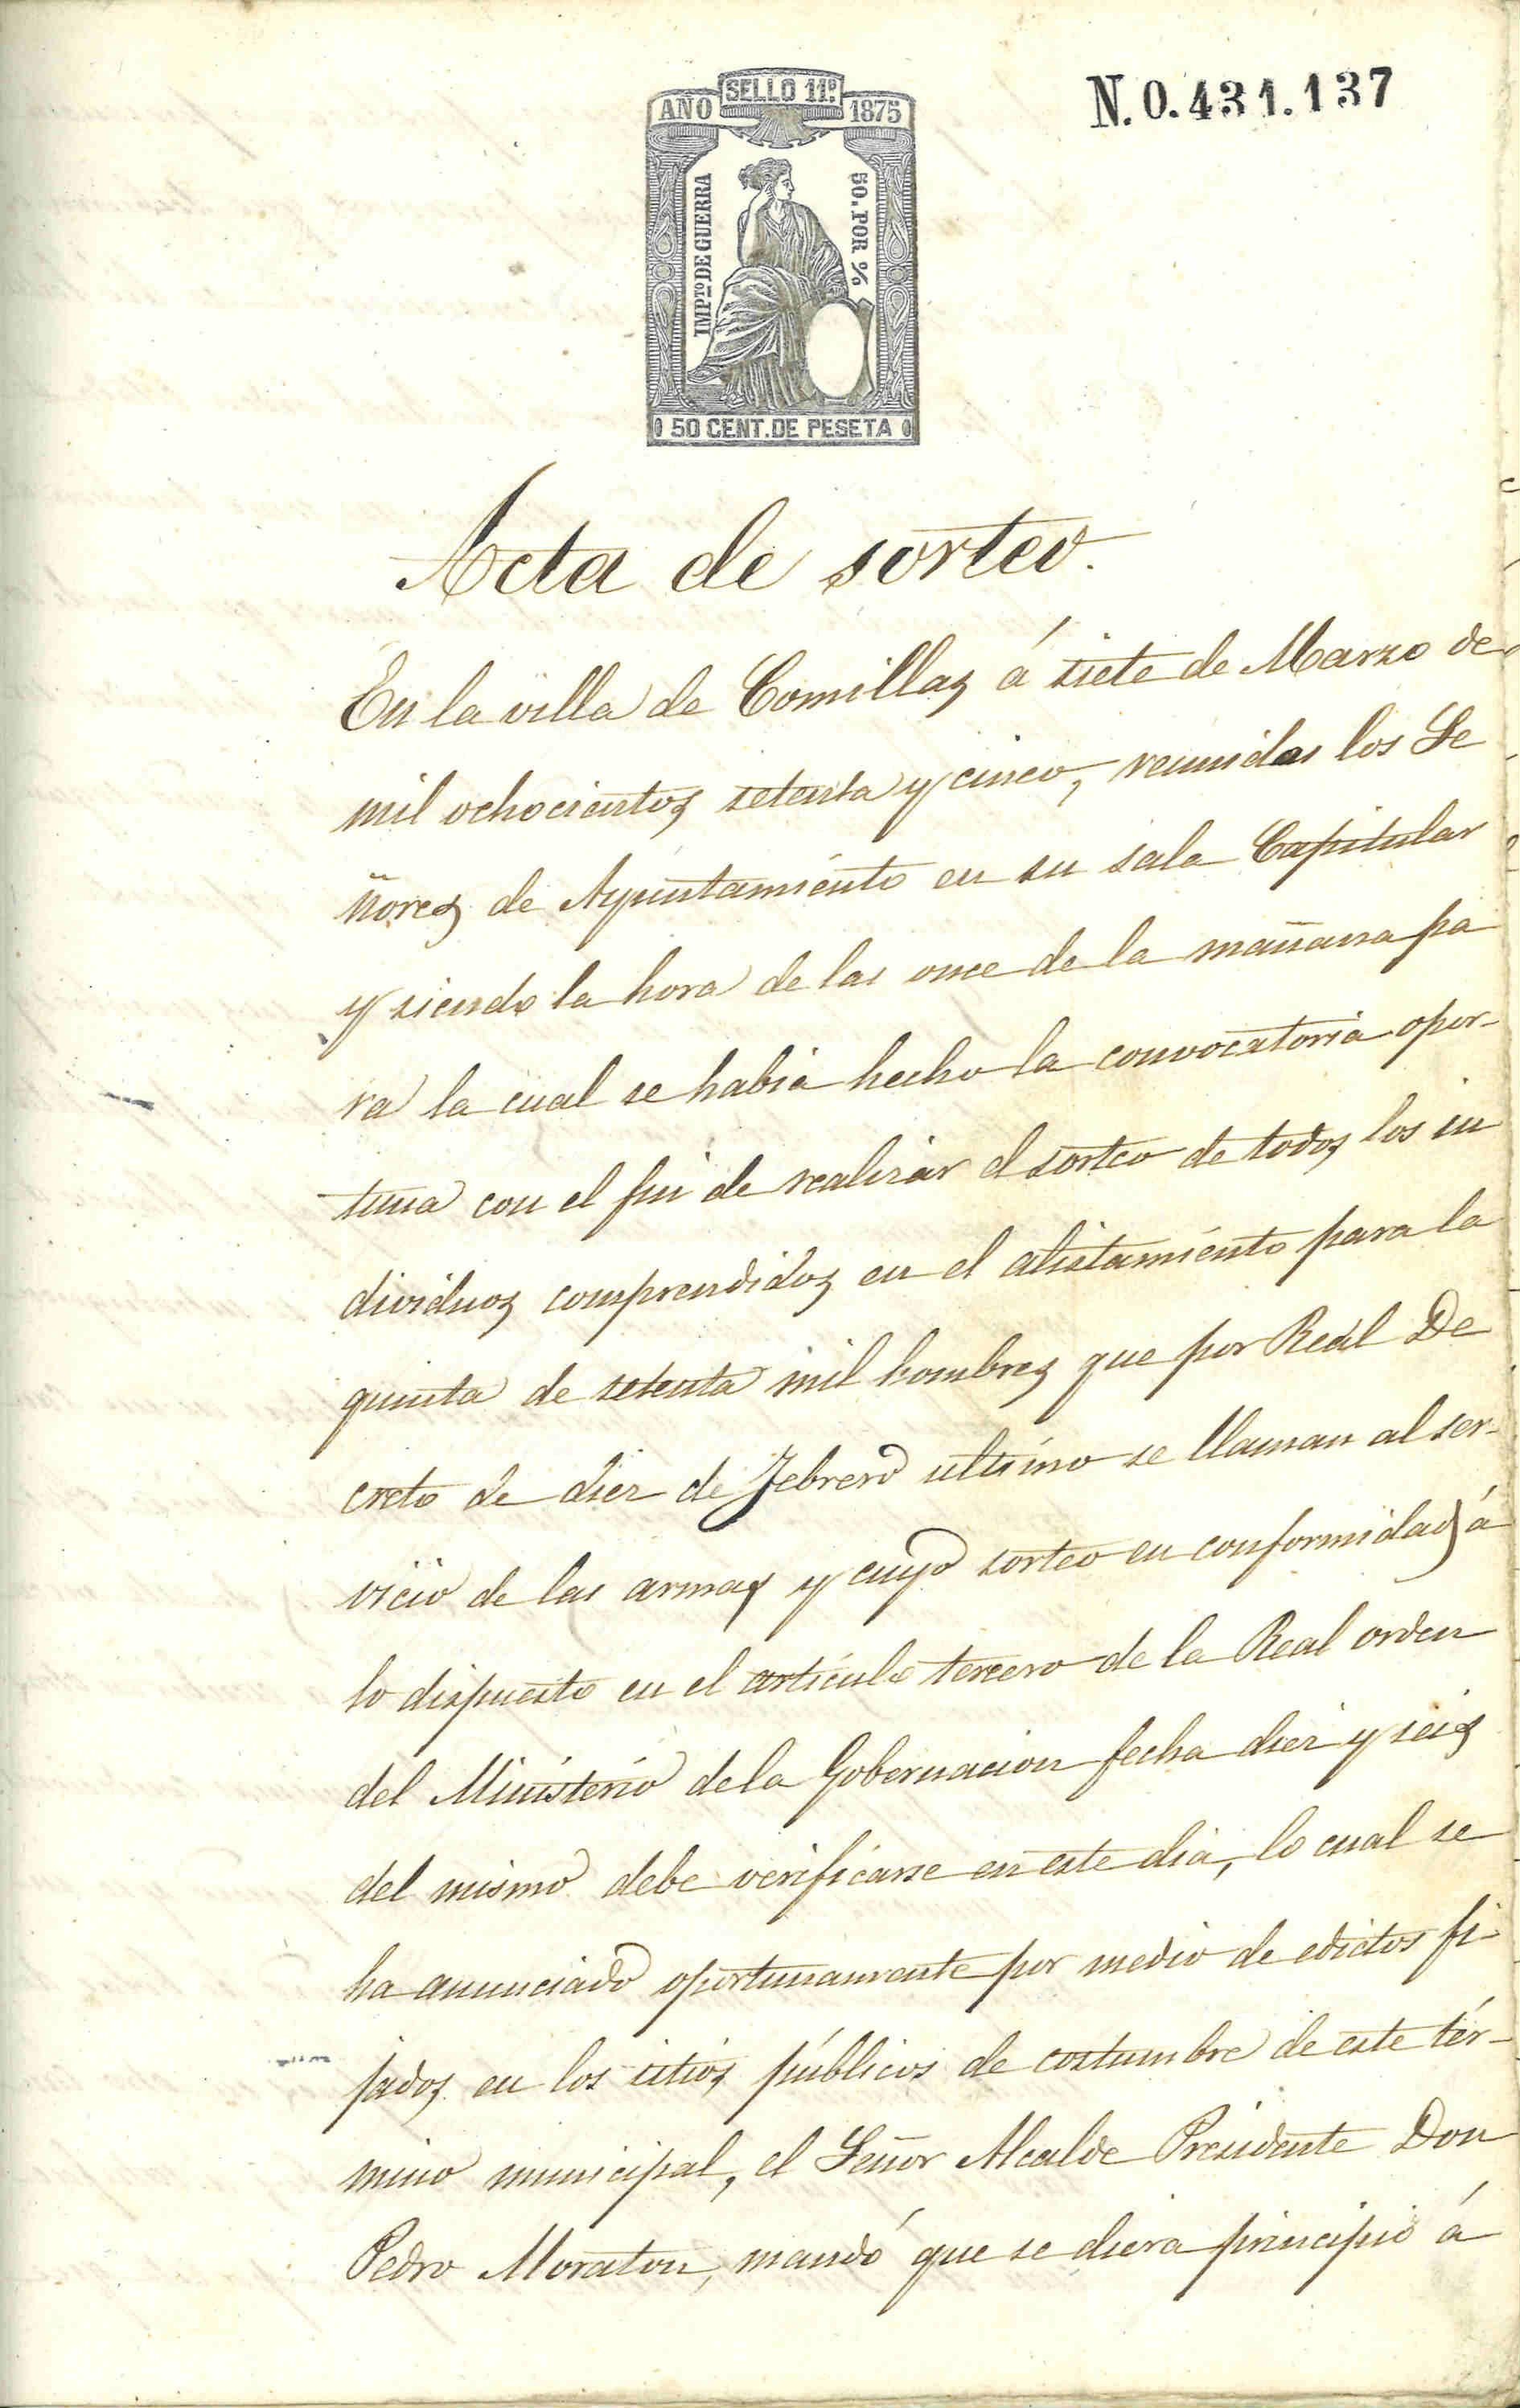 N.0.431.137
SELLO 11º
AÑO 1875
IMPto DE GUERRA
50. POR %
50 CENT. DE PESETA
Acta de sorteo.
En la villa de Comillas á siete de Marzo de
mil ochocientos setenta y cinco, reunidos los Se
ñores de Ayuntamiento en su sala Capitular
y siendo la hora de las once de la mañana pa
ra la cual se habia hecho la convocatoria opor-
tuna con el fin de realizar el sorteo de todos los in
dividuos comprendidos en el alistamiento para la
quinta de setenta mil hombres que por Real De
creto de diez de Febrero ultimo se llaman al ser-
vicio de las armas y cuyo sorteo en conformidad á
lo dispuesto en el artículo tercero de la Real orden
del Ministerio de la Gobernacion fecha diez y seis
del mismo debe verificarse en este dia, lo cual se
ha anunciado oportunamente por medio de edictos fi-
jados en los sitios públicos de costumbre de este tér-
mino municipal, el Señor Alcalde Presidente Don
Pedro Moraton, mandó que se diera principio á